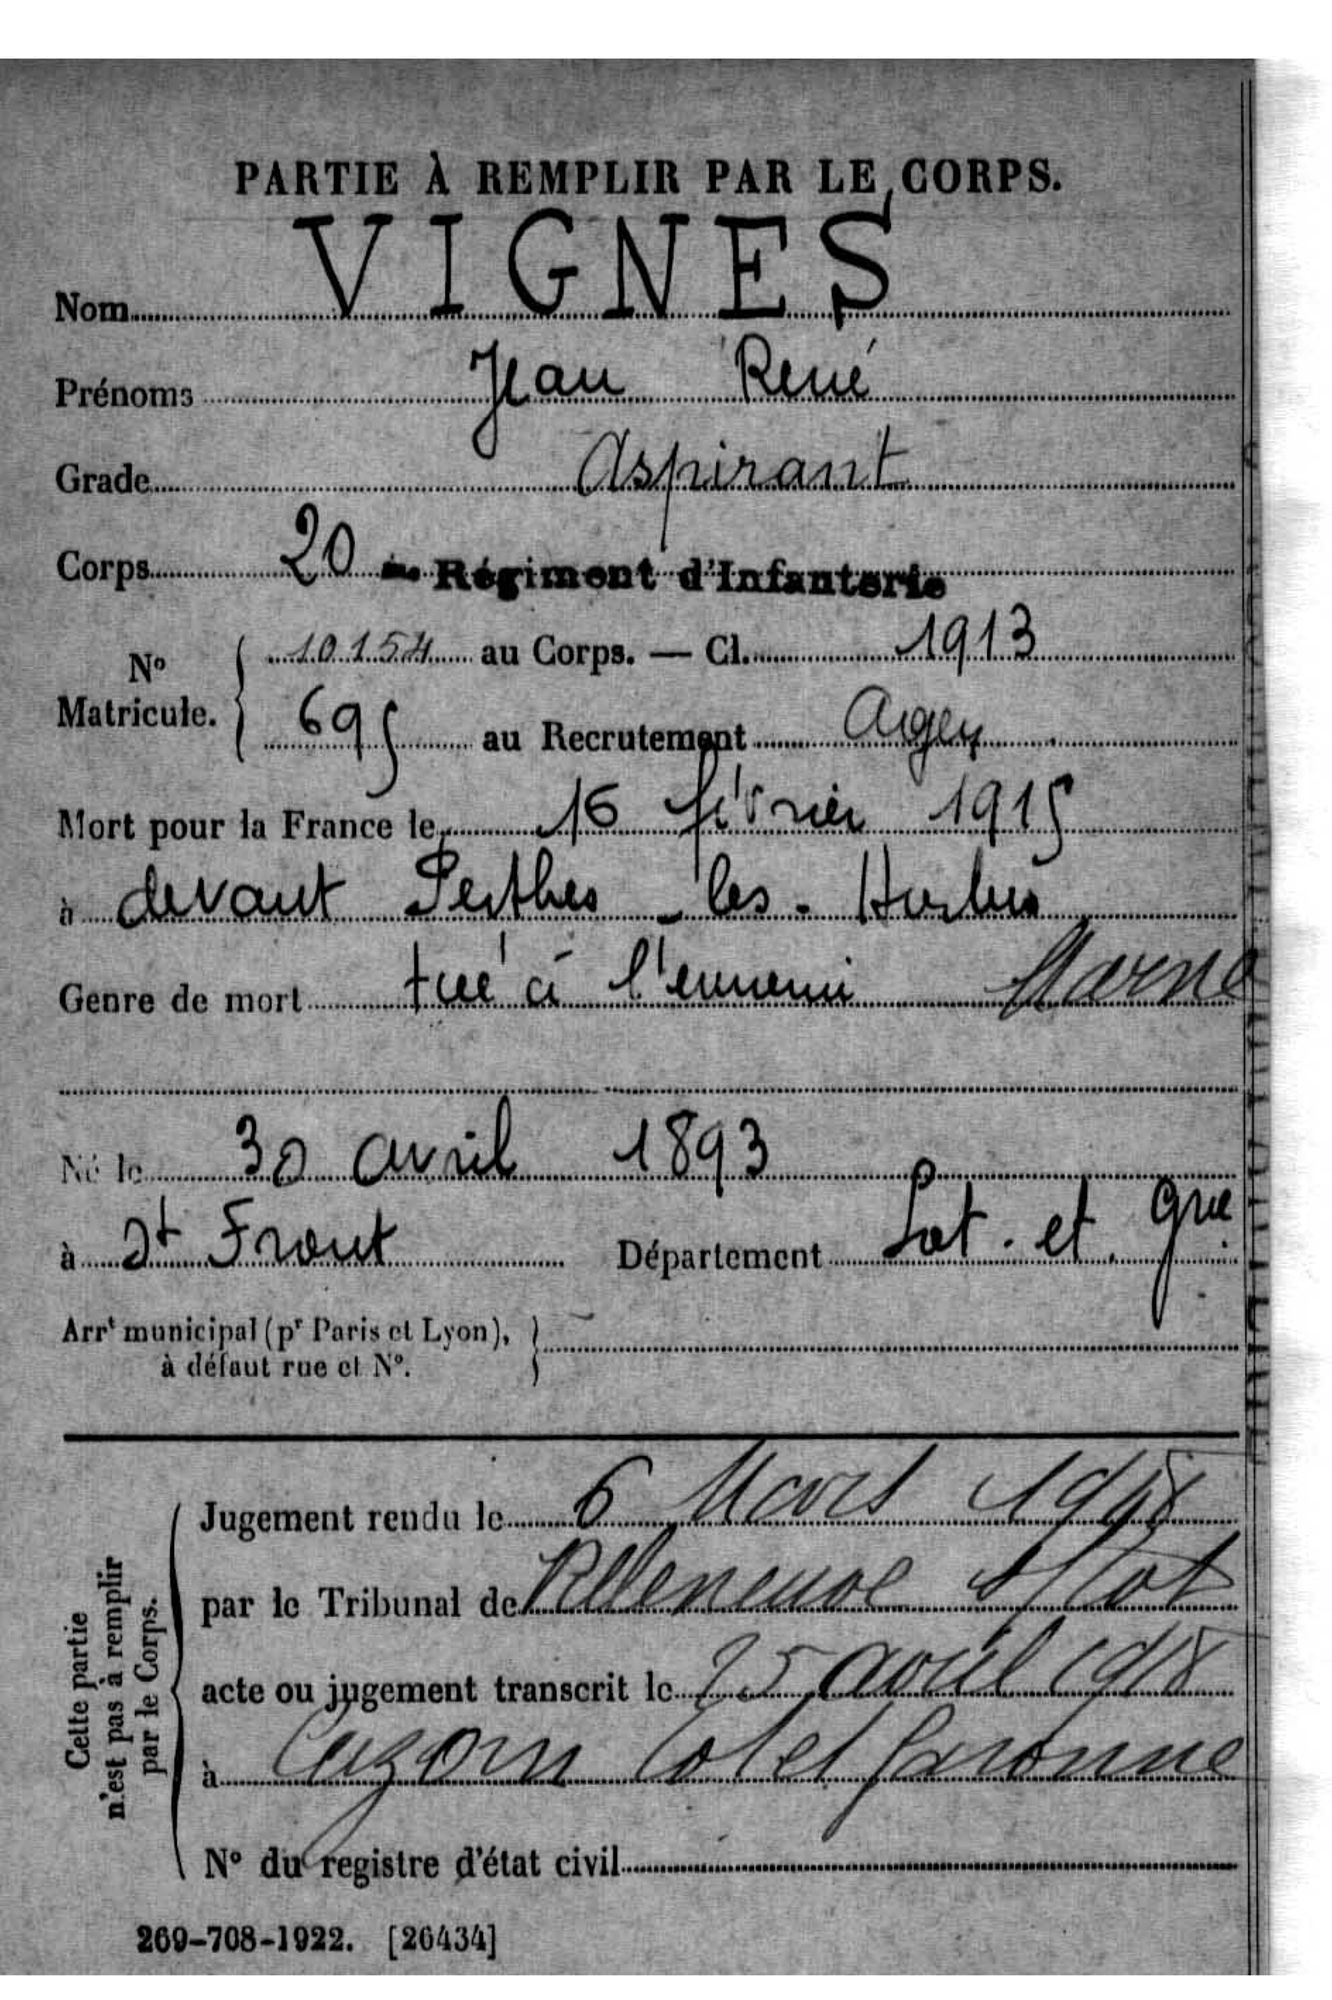 PARTIE À REMPLIR PAR LE CORPS.
Nom VIGNES
Prénoms Jean René
Grade Aspirant
Corps 20 me Régiment d'Infanterie
N° Matricule. { 10154 au Corps. — Cl. 1913
695 au Recrutement Agen
Mort pour la France le 16 février 1915
à devant Perthes - les - Hurlus
Genre de mort tué à l'ennemi Marne
Né le 30 avril 1893
à St Front Département Lot. et. Gne
Arrt municipal (pr Paris et Lyon), }
à défaut rue et N°.
Cette partie
n'est pas à remplir
par le Corps.
Jugement rendu le 6 Mars 1918
par le Tribunal de Villeneuve s/Lot
acte ou jugement transcrit le 25 avril 1918
à Cuzorn Lot et Garonne
N° du registre d'état civil
269-708-1922. [26434]